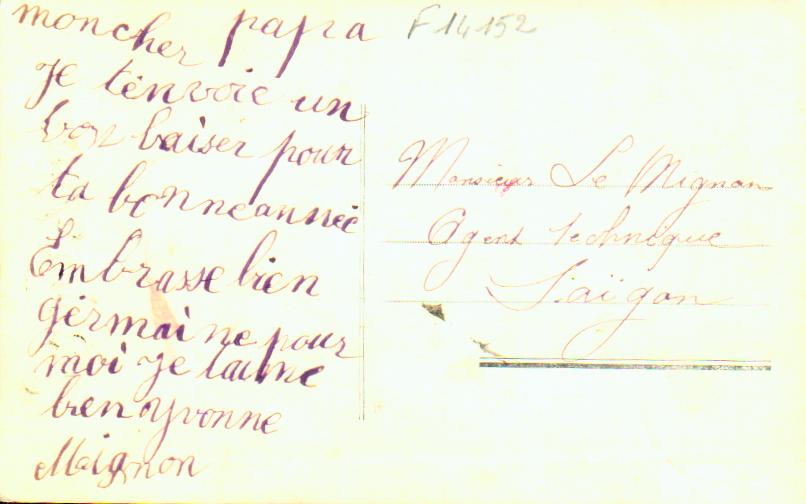 moncher papa
Je t'envoie un
bon baiser pour
ta bonneannée
Embrasse bien
germaine pour
moi je taime
bien Yvonne
Mignon
F 14152
Monsieur Le Mignon
Agent technique
Saïgon